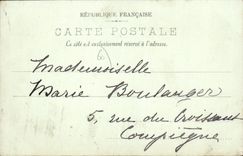 RÉPUBLIQUE FRANÇAISE
CARTE POSTALE
Ce côté est exclusivement réservé à l'adresse.
Mademoiselle
Marie Boulanger
5, rue du Croissant
Compiègne